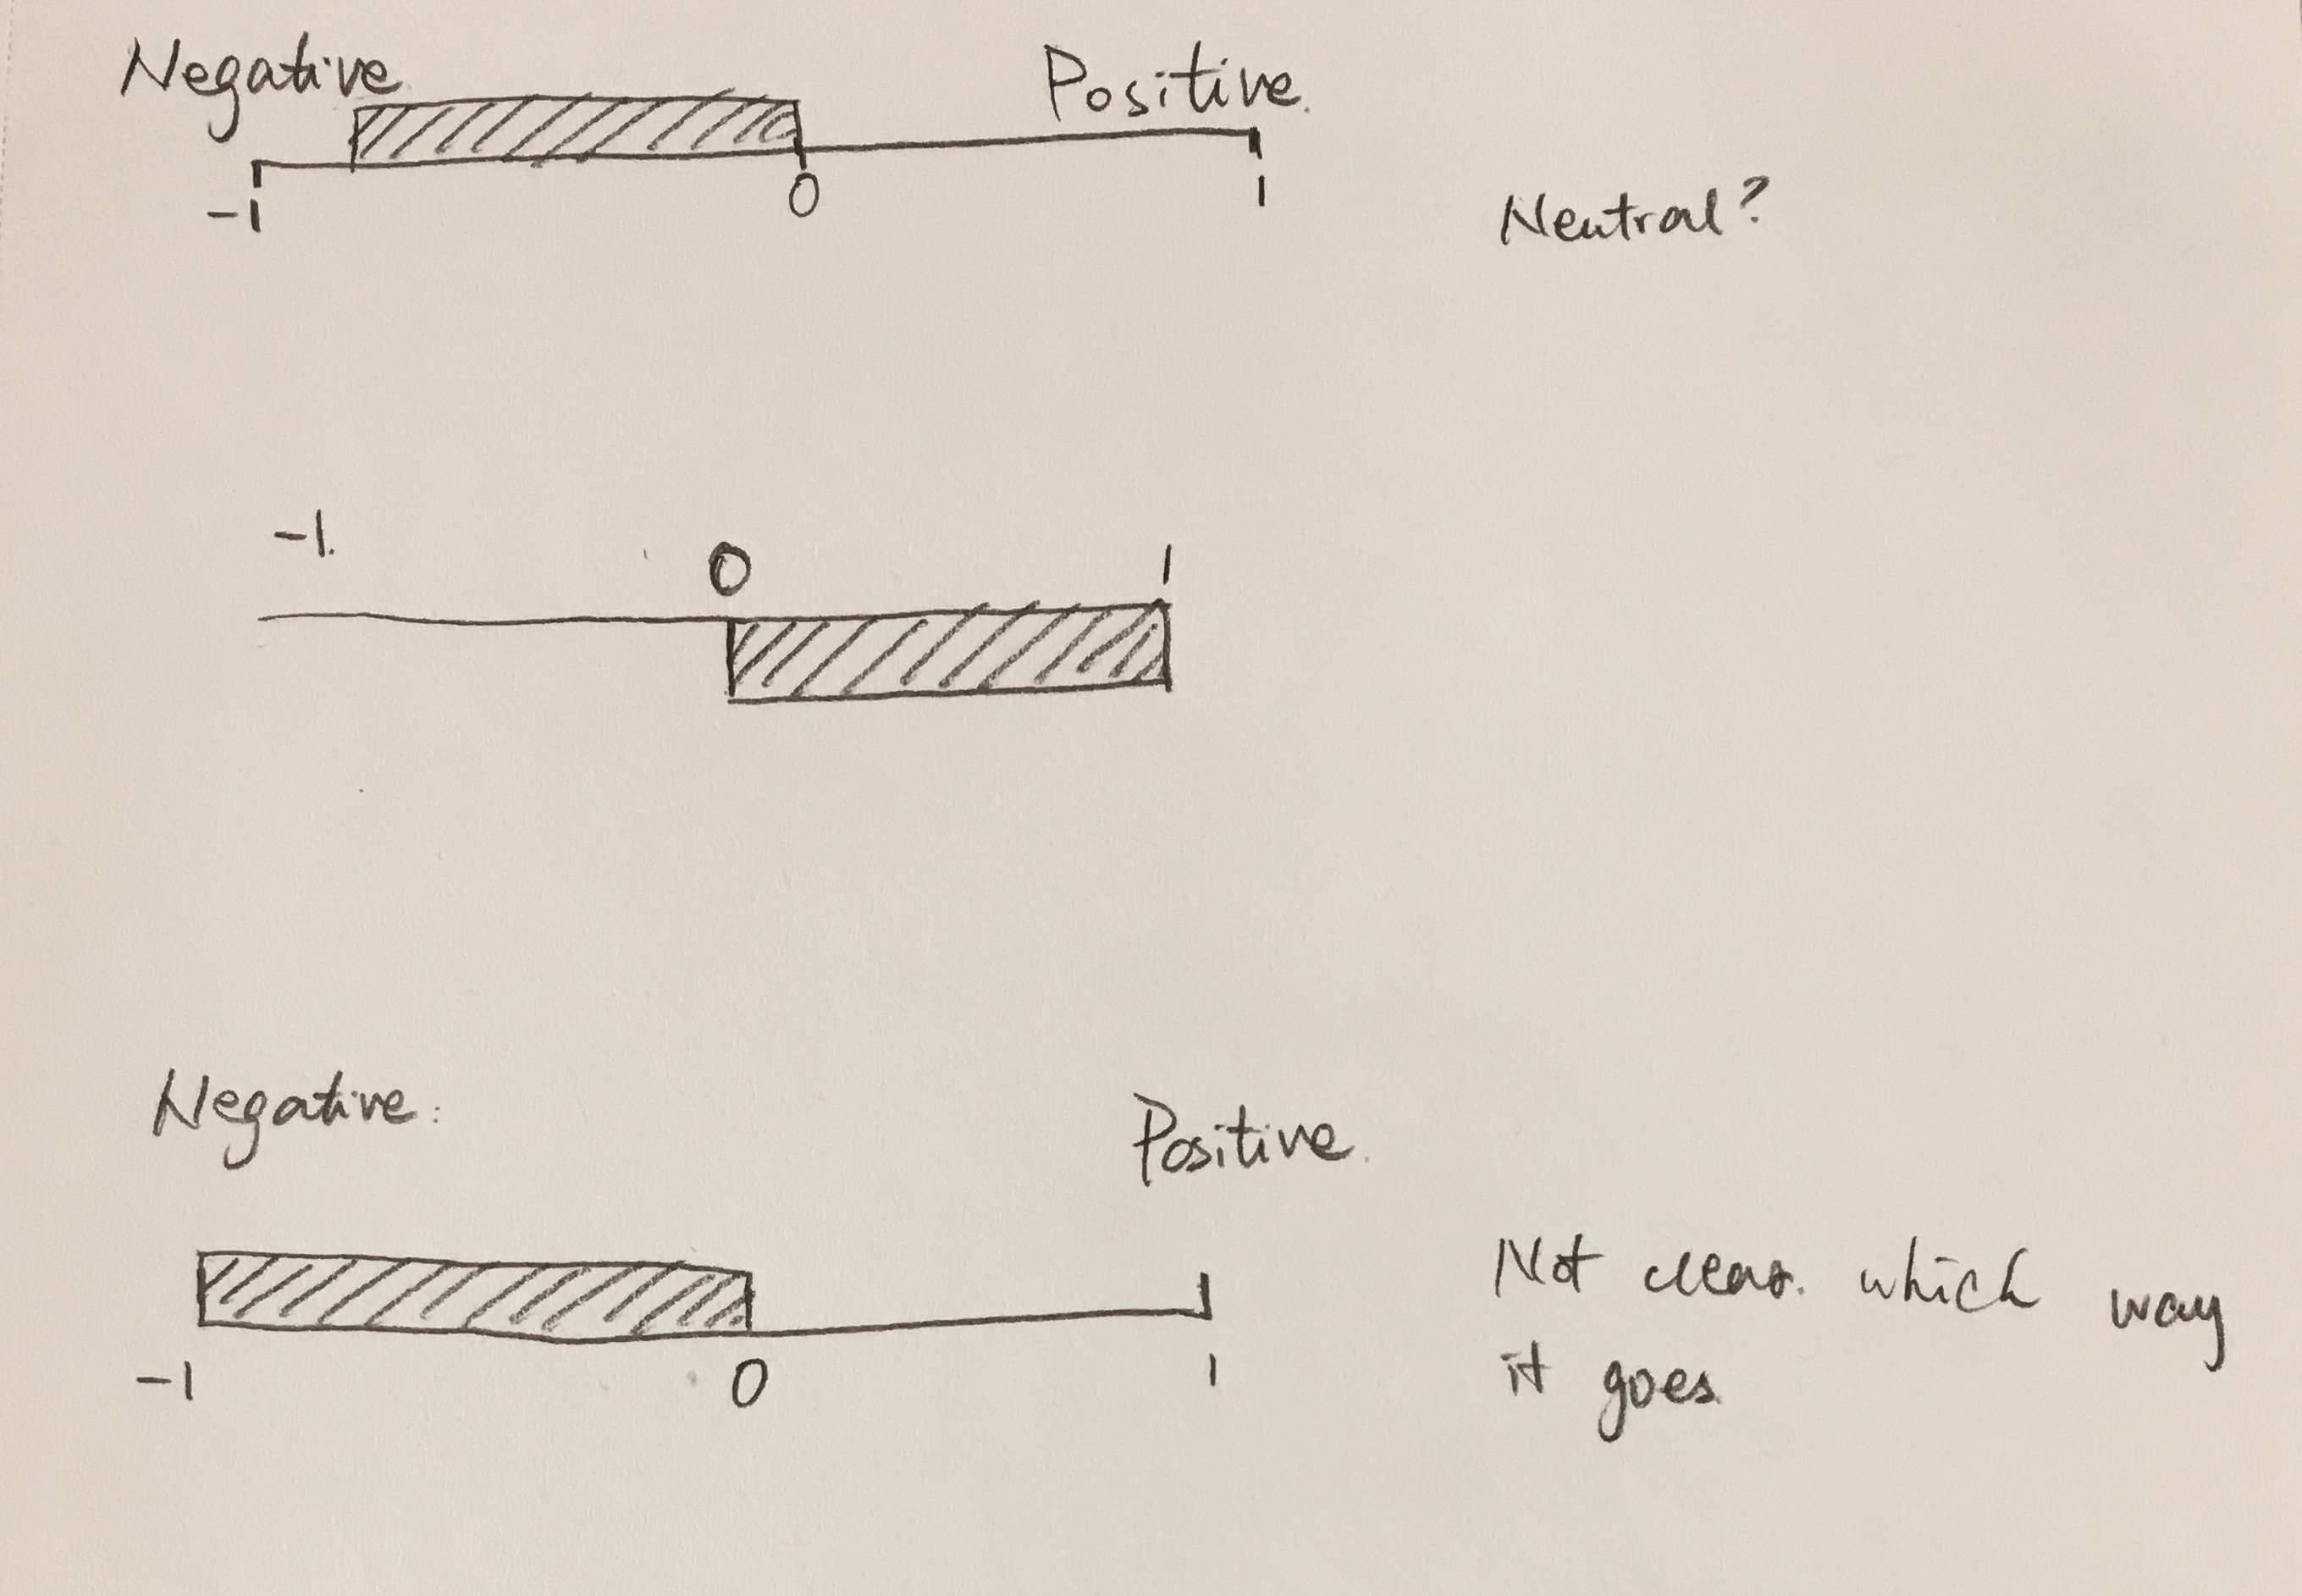 Negative
Positive.
-1
0
1
Neutral?
-1.
0
1
Negative:
Positive.
-1
0
1
Not clear. which way
it goes.